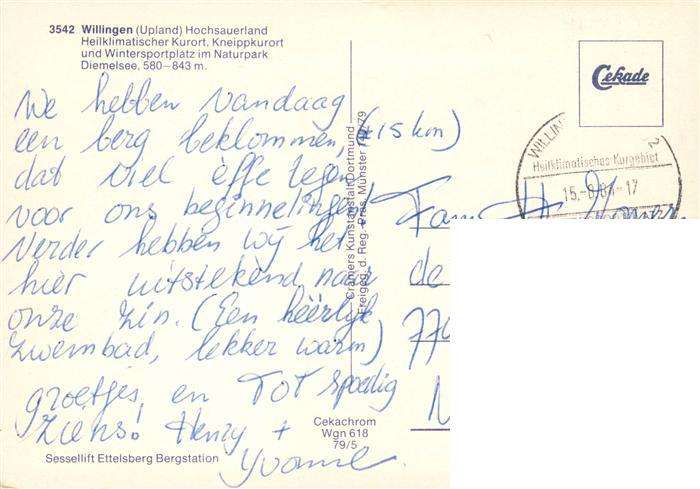 3542 Willingen (Upland) Hochsauerland
Heilklimatischer Kurort, Kneippkurort
und Wintersportplatz im Naturpark
Diemelsee, 580–843 m.
We hebben vandaag
een berg beklommen, (±15 km)
dat viel effe tegen
voor ons beginnelingen!
Verder hebben wij het
hier uitstekend naar
onze zin. (Een heerlijk
zwembad, lekker warm)
groetjes, en tot spoedig
ziens! Henry +
Yvonne.
Sessellift Ettelsberg Bergstation
Cramers Kunstanstalt Dortmund
Freigeg. d. Reg. Präs. Münster
Cekachrom
Wgn 618
79/5
Cekade
WILLIN
Heilklimatisches Kurgebiet
Fam
de
77